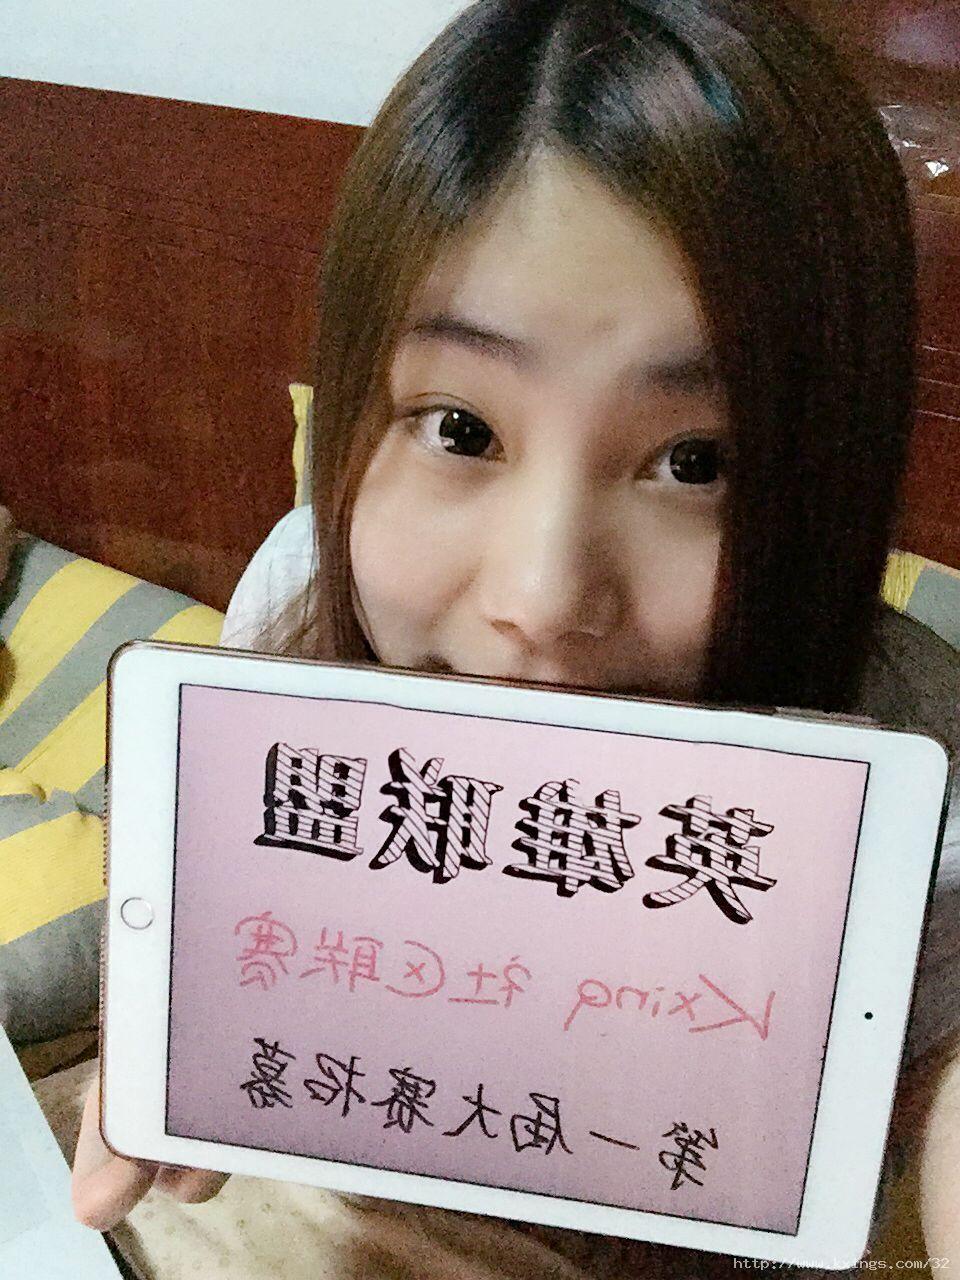 英雄联盟
Kxing 社区联赛
第一届大赛招募
http://www.kxings.com/32